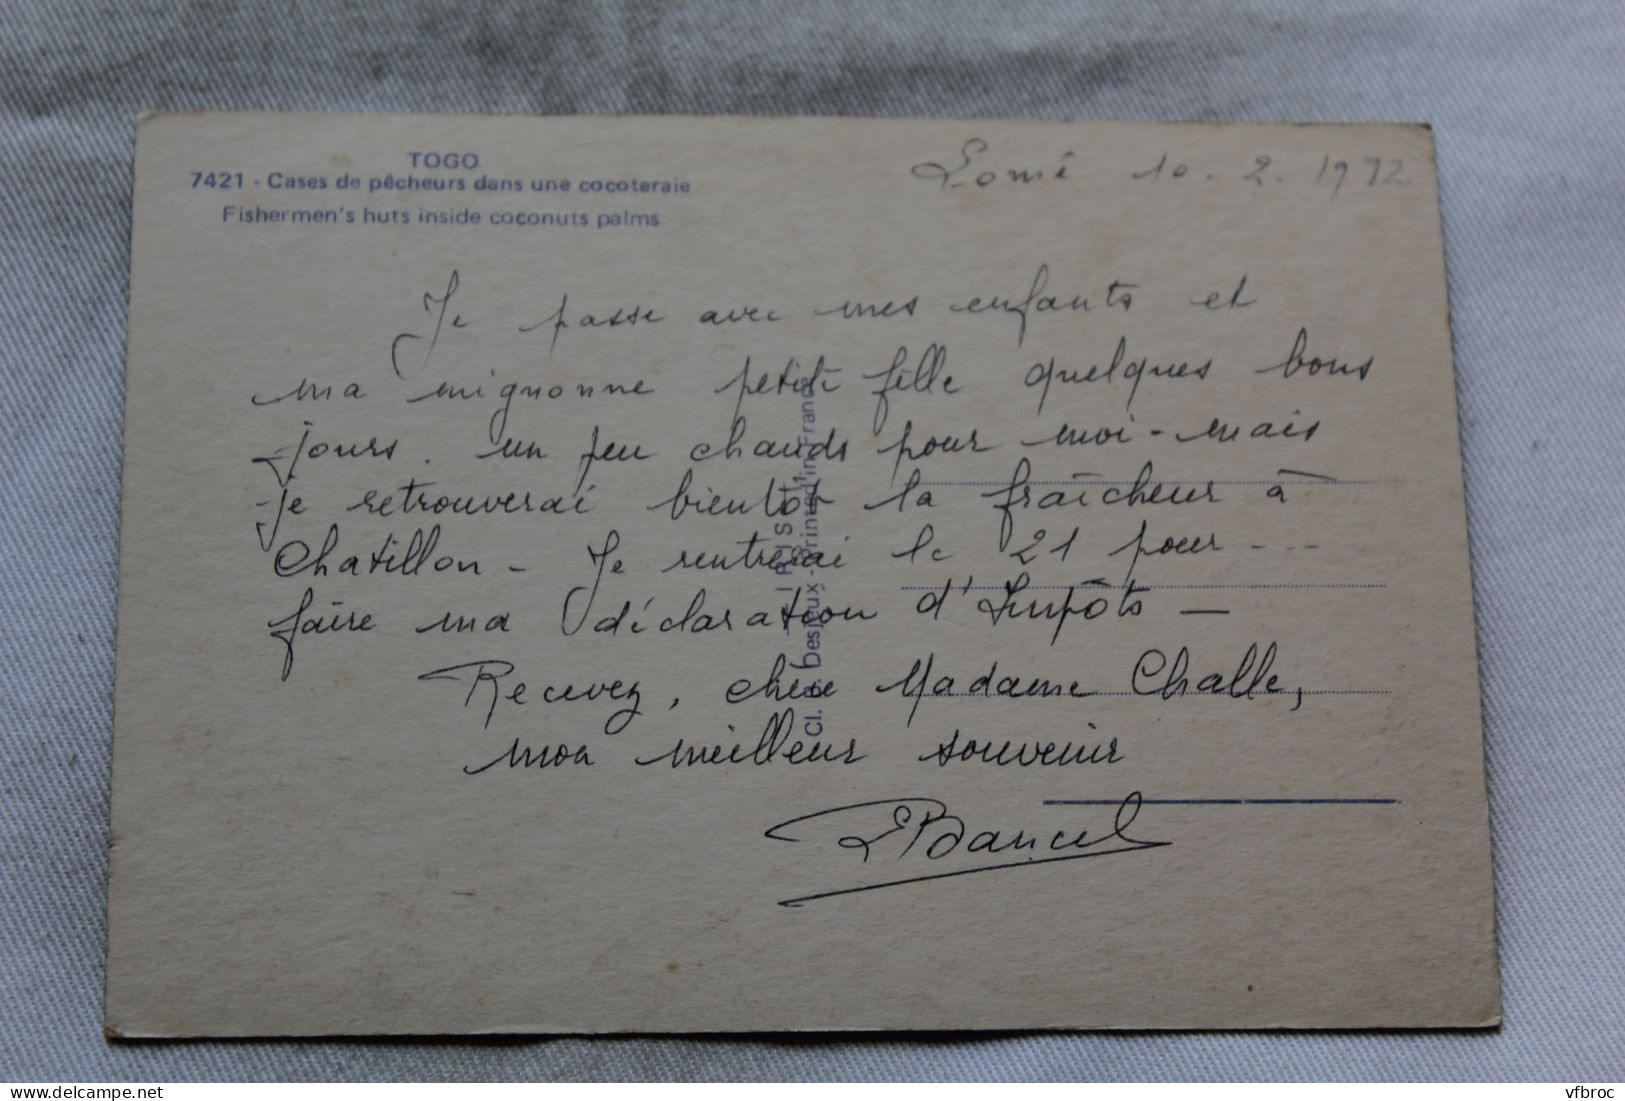 TOGO
7421 - Cases de pêcheurs dans une cocoteraie
Fishermen's huts inside coconuts palms
Lomé 10.2.1972
Je passe avec mes enfants et
ma mignonne petite fille quelques bons
jours. un peu chauds pour moi - mais
je retrouverai bientot la fraîcheur à
Chatillon - Je rentrerai le 21 pour ...
faire ma déclaration d'Impôts -
Recevez, chère Madame Challe,
mon meilleur souvenir
Bancel
IRIS
Desjeux - Printed in France
Delcampe.net
vfbroc